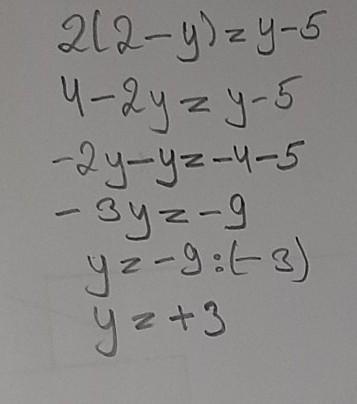 2(2-y)=y-5
4-2y=y-5
-2y-y=-4-5
-3y=-9
y=-9:(-3)
y=+3